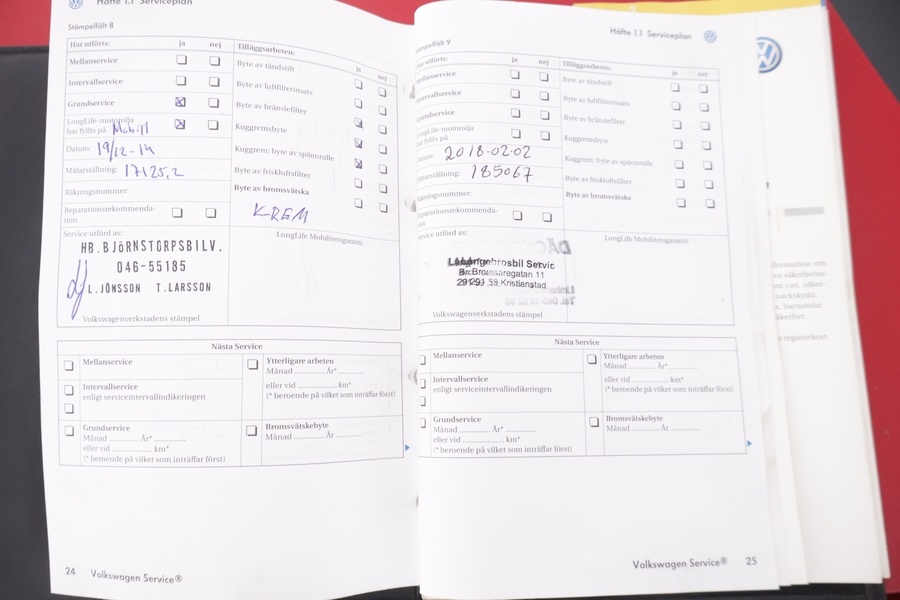 Häfte 1.1 Serviceplan
Stämpelfält 8
Har utförts: ja nej
Mellanservice
Intervallservice
Grundservice
LongLife-motorolja
har fyllts på Mobil1
Datum: 19/12-14
Mätarställning: 17125,2
Räkningsnummer:
Reparationsrekommenda-
tion
Tilläggsarbeten: ja nej
Byte av tändstift
Byte av luftfilterinsats
Byte av bränslefilter
Kuggremsbyte
Kuggrem: byte av spännrulle
Byte av friskluftsfilter
Byte av bromsvätska
K-REM
Service utförd av:
HB.BJÖRNSTORPSBILV.
046-55185
L.JÖNSSON T.LARSSON
Volkswagenverkstadens stämpel
LongLife Mobilitetsgaranti:
Nästa Service
Mellanservice
Intervallservice
enligt serviceintervallindikeringen
Grundservice
Månad ............ År* ..............
eller vid .................. km*
(* beroende på vilket som inträffar först)
Ytterligare arbeten
Månad ............ År* ............
eller vid .................. km*
(* beroende på vilket som inträffar först)
Bromsvätskebyte
Månad ............ År ............
24 Volkswagen Service®
Häfte 1.1 Serviceplan
Stämpelfält 9
Har utförts: ja nej
Mellanservice
Intervallservice
Grundservice
LongLife-motorolja
har fyllts på
Datum: 2018-02-02
Mätarställning: 185067
Räkningsnummer:
Reparationsrekommenda-
tion
Tilläggsarbeten: ja nej
Byte av tändstift
Byte av luftfilterinsats
Byte av bränslefilter
Kuggremsbyte
Kuggrem: byte av spännrulle
Byte av friskluftsfilter
Byte av bromsvätska
Service utförd av:
Servic
11
Kristianstad
Volkswagenverkstadens stämpel
LongLife Mobilitetsgaranti:
Nästa Service
Mellanservice
Intervallservice
enligt serviceintervallindikeringen
Grundservice
Månad ............ År* ..............
eller vid .................. km*
(* beroende på vilket som inträffar först)
Ytterligare arbeten
Månad ............ År* ............
eller vid .................. km*
(* beroende på vilket som inträffar först)
Bromsvätskebyte
Månad ............ År ............
Volkswagen Service® 25